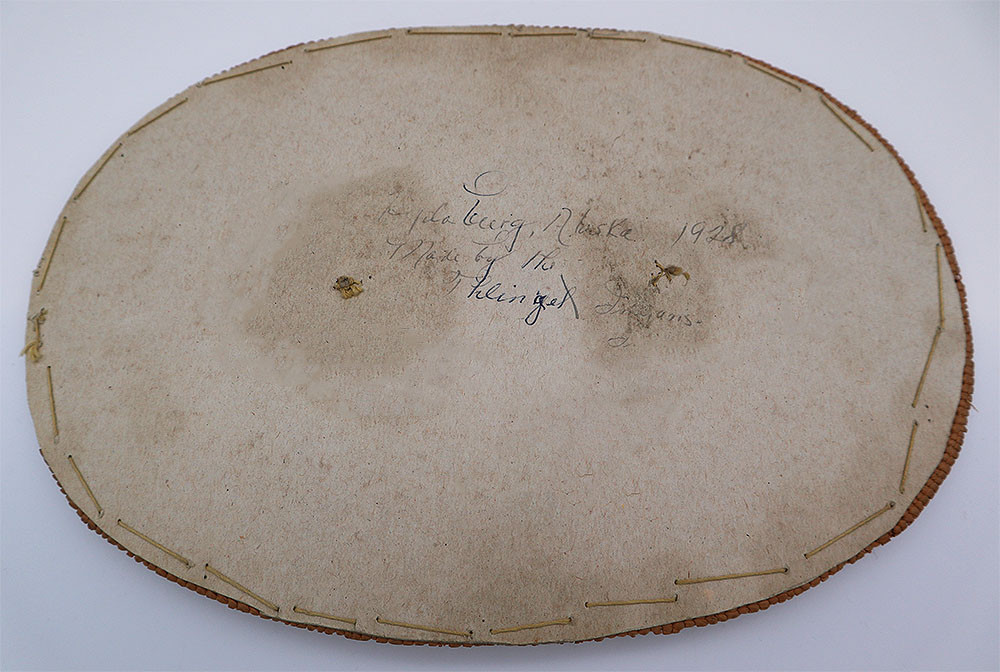 Alaska 1928
Made by the
Thlinget Indians.